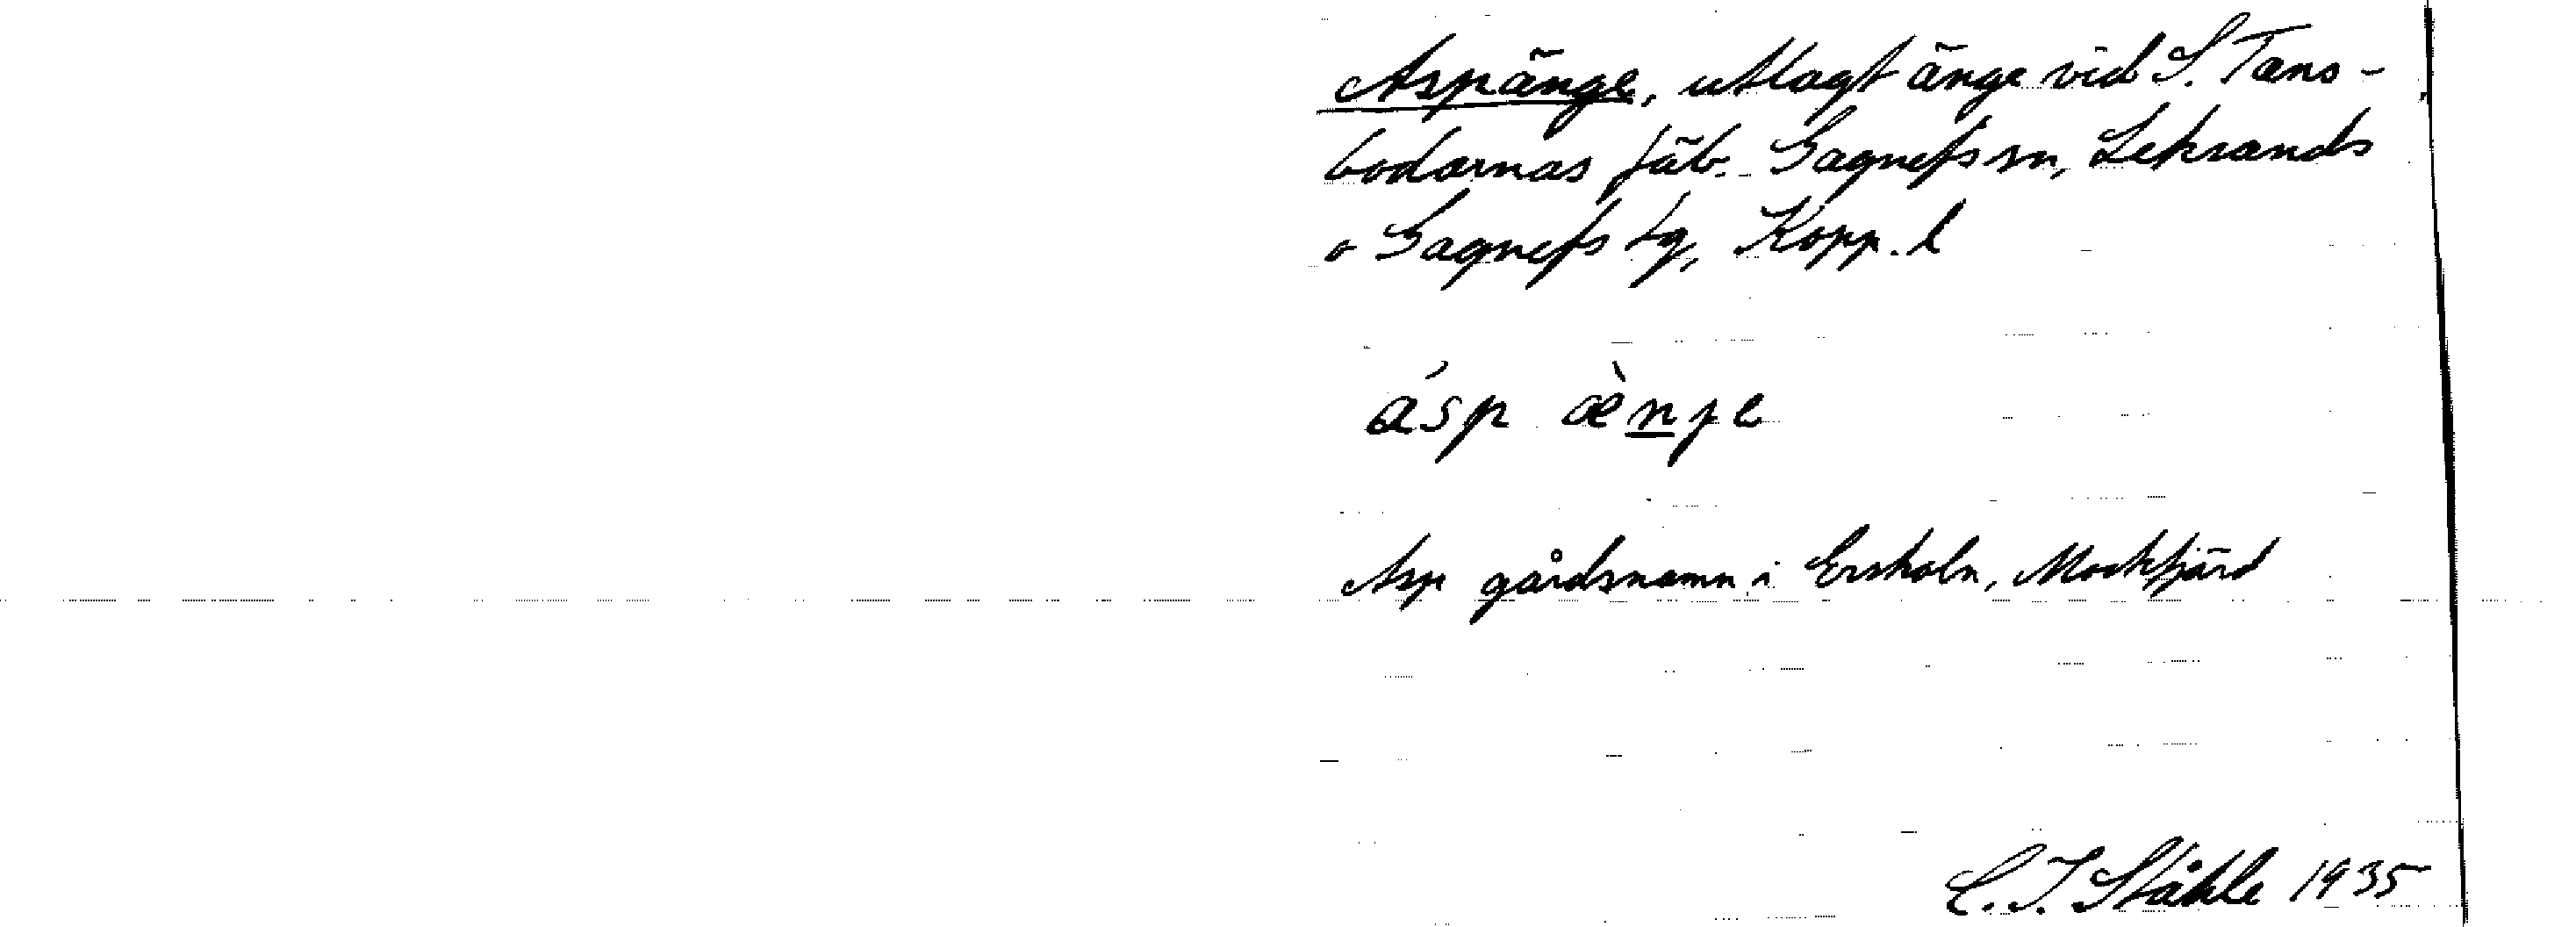 Aspänge, utlagt änge vid S. Tans-
bodarnas fäb. Gagnefs sn, Leksands
o Gagnefs tg, Kopp. l
ásp æ̀nje
Asp gårdsnamn i Ersholn, Mockfjärd
C. I. Ståhle 1935